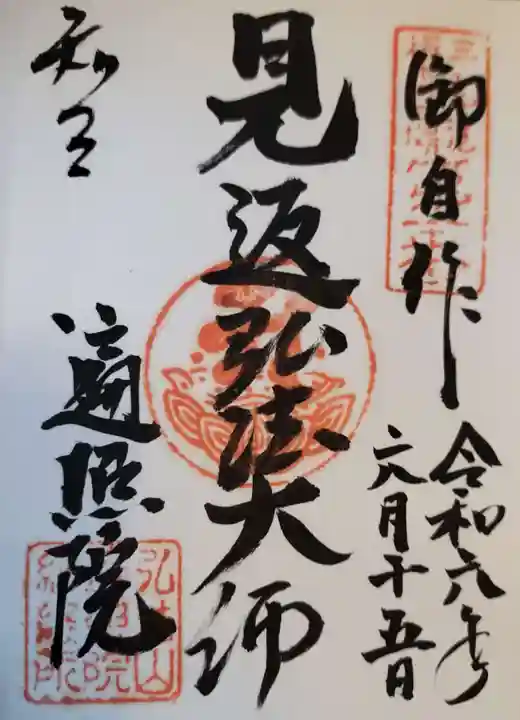 御自作
令和六年
六月十五日
見返弘法大師
知立
遍照院
弘法山